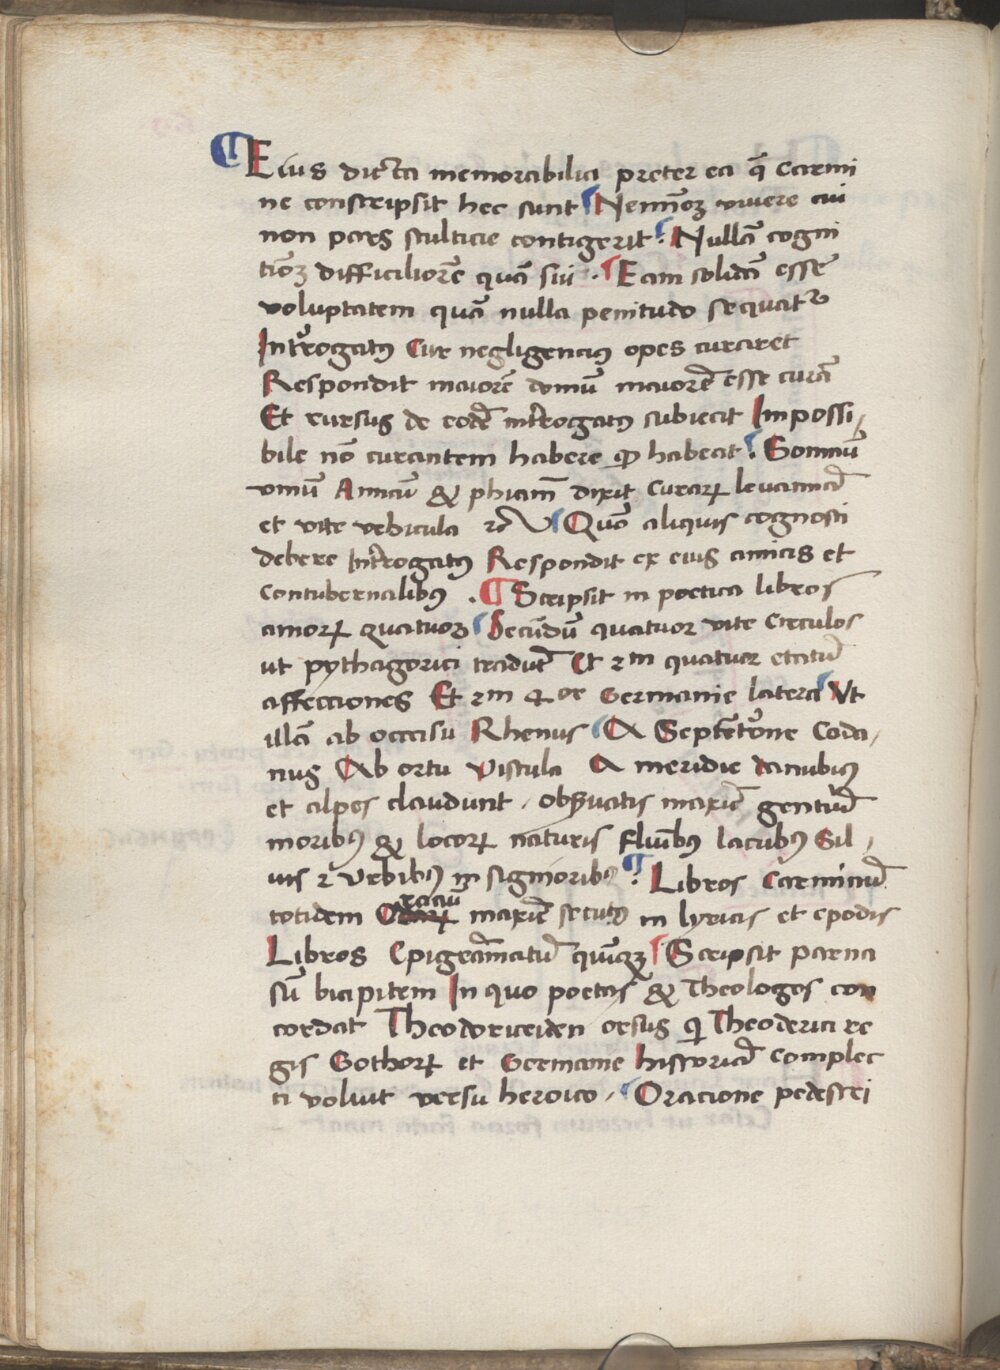 ¶ Eius dicta memorabilia preter ea q̄ carmi
ne conscripsit hec sunt Nemīeꝫ vivere cui
non pars stulticie contigerit. Nullā cogni
tiōeꝫ difficiliorē quā sui . Eam solidā esse
voluptatem quā nulla penitudo sequatᷣ
Intͬrogatꝰ Cur negligencius opes curaret
Respondit maiorē domū maiorē esse curā
Et rursus de eodē intͬrogatꝰ subiecit Impossi,
bile nō curantem habere qͦ habeat. Somnū
vinū Amicū & phiam̄ dixit curaꝝ levamina
et vite vehicula Quō aliquis cognosci
debere Intͬrogatꝰ Respondit ex eius amicis et
Contubernalibꝰ . ¶ Scripsit in poetica libros
amoꝝ quatuoꝛ Secūdū quatuor vite Circulos
ut pythagorici tradūt Et 2m quatuor etatū
affecciones Et 2m 4or Germanie latera Vt
illā ab occasu Rhenus A Septētͥone Coda,
nus Ab ortu Viscula A meridie danubiꝰ
et alpes claudunt , obẜvatis maxīe gentiū
moribꝰ & locoꝝ naturis fluīibꝰ lacubꝰ Sil,
uis 2 Vrbibꝰ insignioribꝰ. Libros Carminū
totidem Oraciū maxīe secutꝰ in lyricis et epodis
Libros Epigrāmatū quīqꝫ Scripsit parna
sū bicipitem In quo poetas & Theologos con
cordat Theodoriceiden orsus q̄ Theoderici re
gis Gothoꝝ et Germane historiā complec
ti voluit versu heroico , Oracione pedestri